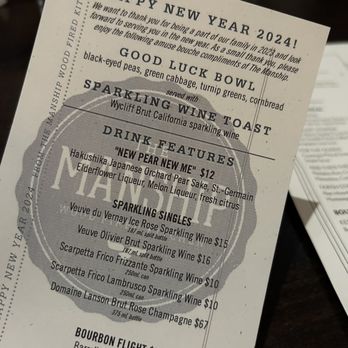 HAPPY NEW YEAR 2024!
We want to thank you for being a part of our family in 2023 and look
forward to serving you in the new year. As a small thank you, please
enjoy the following amuse bouche compliments of The Manship.
GOOD LUCK BOWL
black-eyed peas, green cabbage, turnip greens, cornbread
served with
SPARKLING WINE TOAST
Wycliff Brut California sparkling wine
DRINK FEATURES
"NEW PEAR NEW ME" $12
Hakushika Japanese Orchard Pear Sake, St-Germain
Elderflower Liqueur, Melon Liqueur, fresh citrus
SPARKLING SINGLES
Veuve du Vernay Ice Rose Sparkling Wine $15
187 mL split bottle
Veuve Olivier Brut Sparkling Wine $16
187 mL split bottle
Scarpetta Frico Frizzante Sparkling Wine $10
250mL can
Scarpetta Frico Lambrusco Sparkling Wine $10
250mL can
Domaine Lanson Brut Rose Champagne $67
375 mL bottle
BOURBON FLIGHT
THE
MANSHIP
HAPPY NEW YEAR 2024 FROM THE MANSHIP WOOD FIRED KIT